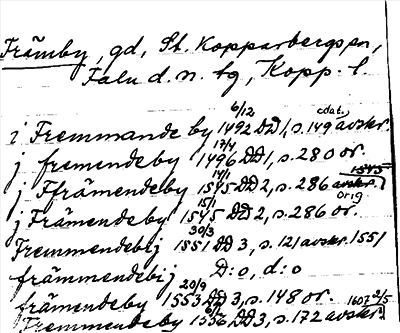 Främby, gd, St. Kopparbergs sn,
Falu d.n. tg, Kopp. l.
i Fremmande by 6/12 1492 DD1, s. 149 odat. avskr.
j fremendeby 17/4 1496 DD1, s. 280 or.
j Ffrämendeby 14/1 1545 DD2, s. 286 avskr. 1545
j Främendeby 15/1 1545 DD2, s. 286 or. orig
Fremmendebij 30/3 1551 DD3, s. 121 avskr. 1551
främmendebij D:o, d:o
främendeby 20/9 1553 DD3, s. 148 or.
Fremmendeby 1556 DD3, s. 172 avskr. 1607 2/5